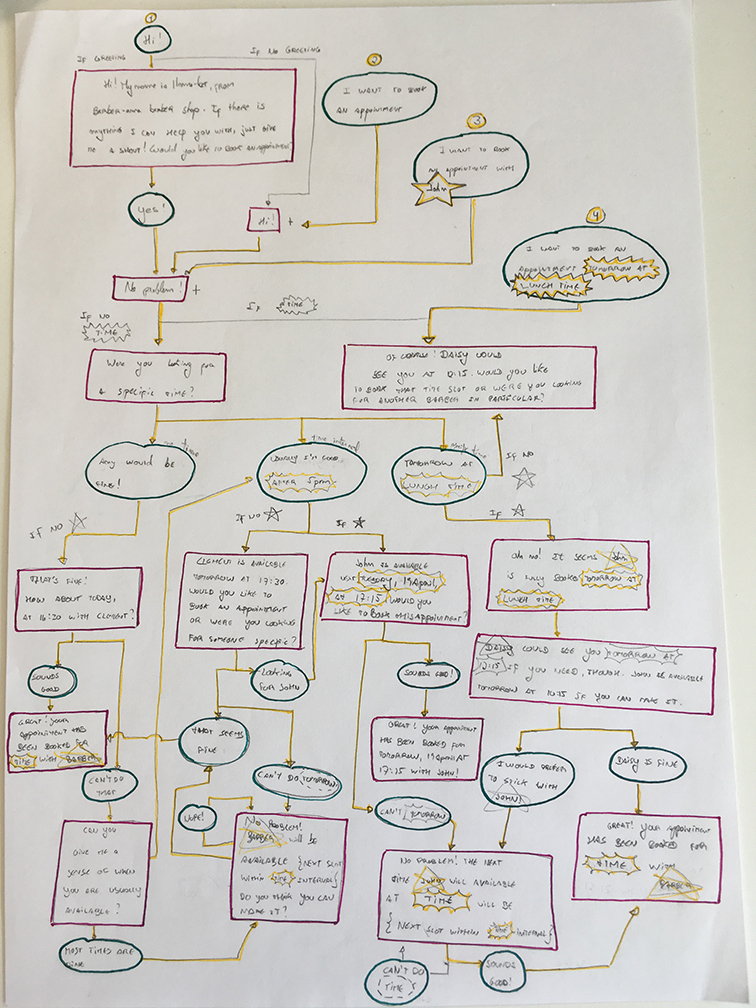 1
Hi!
IF GREETING
IF NO GREETING
Hi! My name is
Barber-
barber shop. If there is
anything I can help you with, just give
me a shout! Would you like to book an appointment
2
I WANT TO BOOK
AN APPOINTMENT
3
I WANT TO BOOK
AN APPOINTMENT WITH
John
Yes!
Hi! +
4
I WANT TO BOOK AN
APPOINTMENT TOMORROW AT
LUNCH TIME
No problem! +
IF NO
TIME
IF TIME
Were you looking for
a specific time?
OF COURSE! DAISY COULD
SEE YOU AT 12:15. WOULD YOU LIKE
TO BOOK THAT TIME SLOT OR WERE YOU LOOKING
FOR ANOTHER BARBER IN PARTICULAR?
no time
Any would be
fine!
time interval
Usually I'm good
AFTER 5pm
single time
TOMORROW AT
LUNCH TIME
IF NO
IF NO
IF NO
IF
IF
THAT'S FINE!
HOW ABOUT TODAY,
AT 16:30 WITH CLEMENT?
CLEMENT IS AVAILABLE
TOMORROW AT 17:30.
WOULD YOU LIKE TO
BOOK AN APPOINTMENT
OR WERE YOU LOOKING
FOR SOMEONE SPECIFIC?
John is available
next Tuesday, 19 April
AT 17:15 WOULD YOU
LIKE TO BOOK THIS APPOINTMENT?
Oh no! It seems John
is fully booked TOMORROW AT
LUNCH TIME
DAISY COULD SEE YOU TOMORROW AT
12:15 IF YOU NEED, THOUGH. JOHN IS AVAILABLE
TOMORROW AT 10:15 IF YOU CAN MAKE IT.
SOUNDS
GOOD
LOOKING
FOR JOHN
SOUNDS GOOD!
GREAT! YOUR
APPOINTMENT HAS
BEEN BOOKED FOR
TIME WITH BARBER
THAT SEEMS
FINE
GREAT! YOUR APPOINTMENT
HAS BEEN BOOKED FOR
TOMORROW, 19 APRIL AT
17:15 WITH JOHN!
I WOULD PREFER
TO STICK WITH
JOHN!
DAISY IS FINE
CAN'T DO
THAT
CAN'T DO TOMORROW
NOPE!
CAN'T TOMORROW
CAN YOU
GIVE ME A
SENSE OF WHEN
YOU ARE USUALLY
AVAILABLE?
No problem!
BARBER will be
AVAILABLE {NEXT SLOT
WITHIN TIME INTERVAL}
DO YOU THINK YOU CAN
MAKE IT?
GREAT! YOUR APPOINTMENT
HAS BEEN BOOKED FOR
TIME WITH
BARBER
NO PROBLEM! THE NEXT
TIME JOHN WILL AVAILABLE
AT TIME WILL BE
{NEXT SLOT WITHIN TIME INTERVAL}
MOST TIMES ARE
FINE
CAN'T DO
TIME
SOUNDS
GOOD!